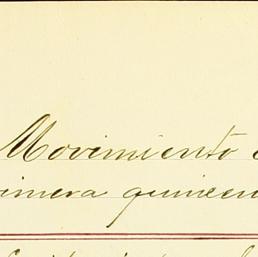 Movimiento
imera quincen